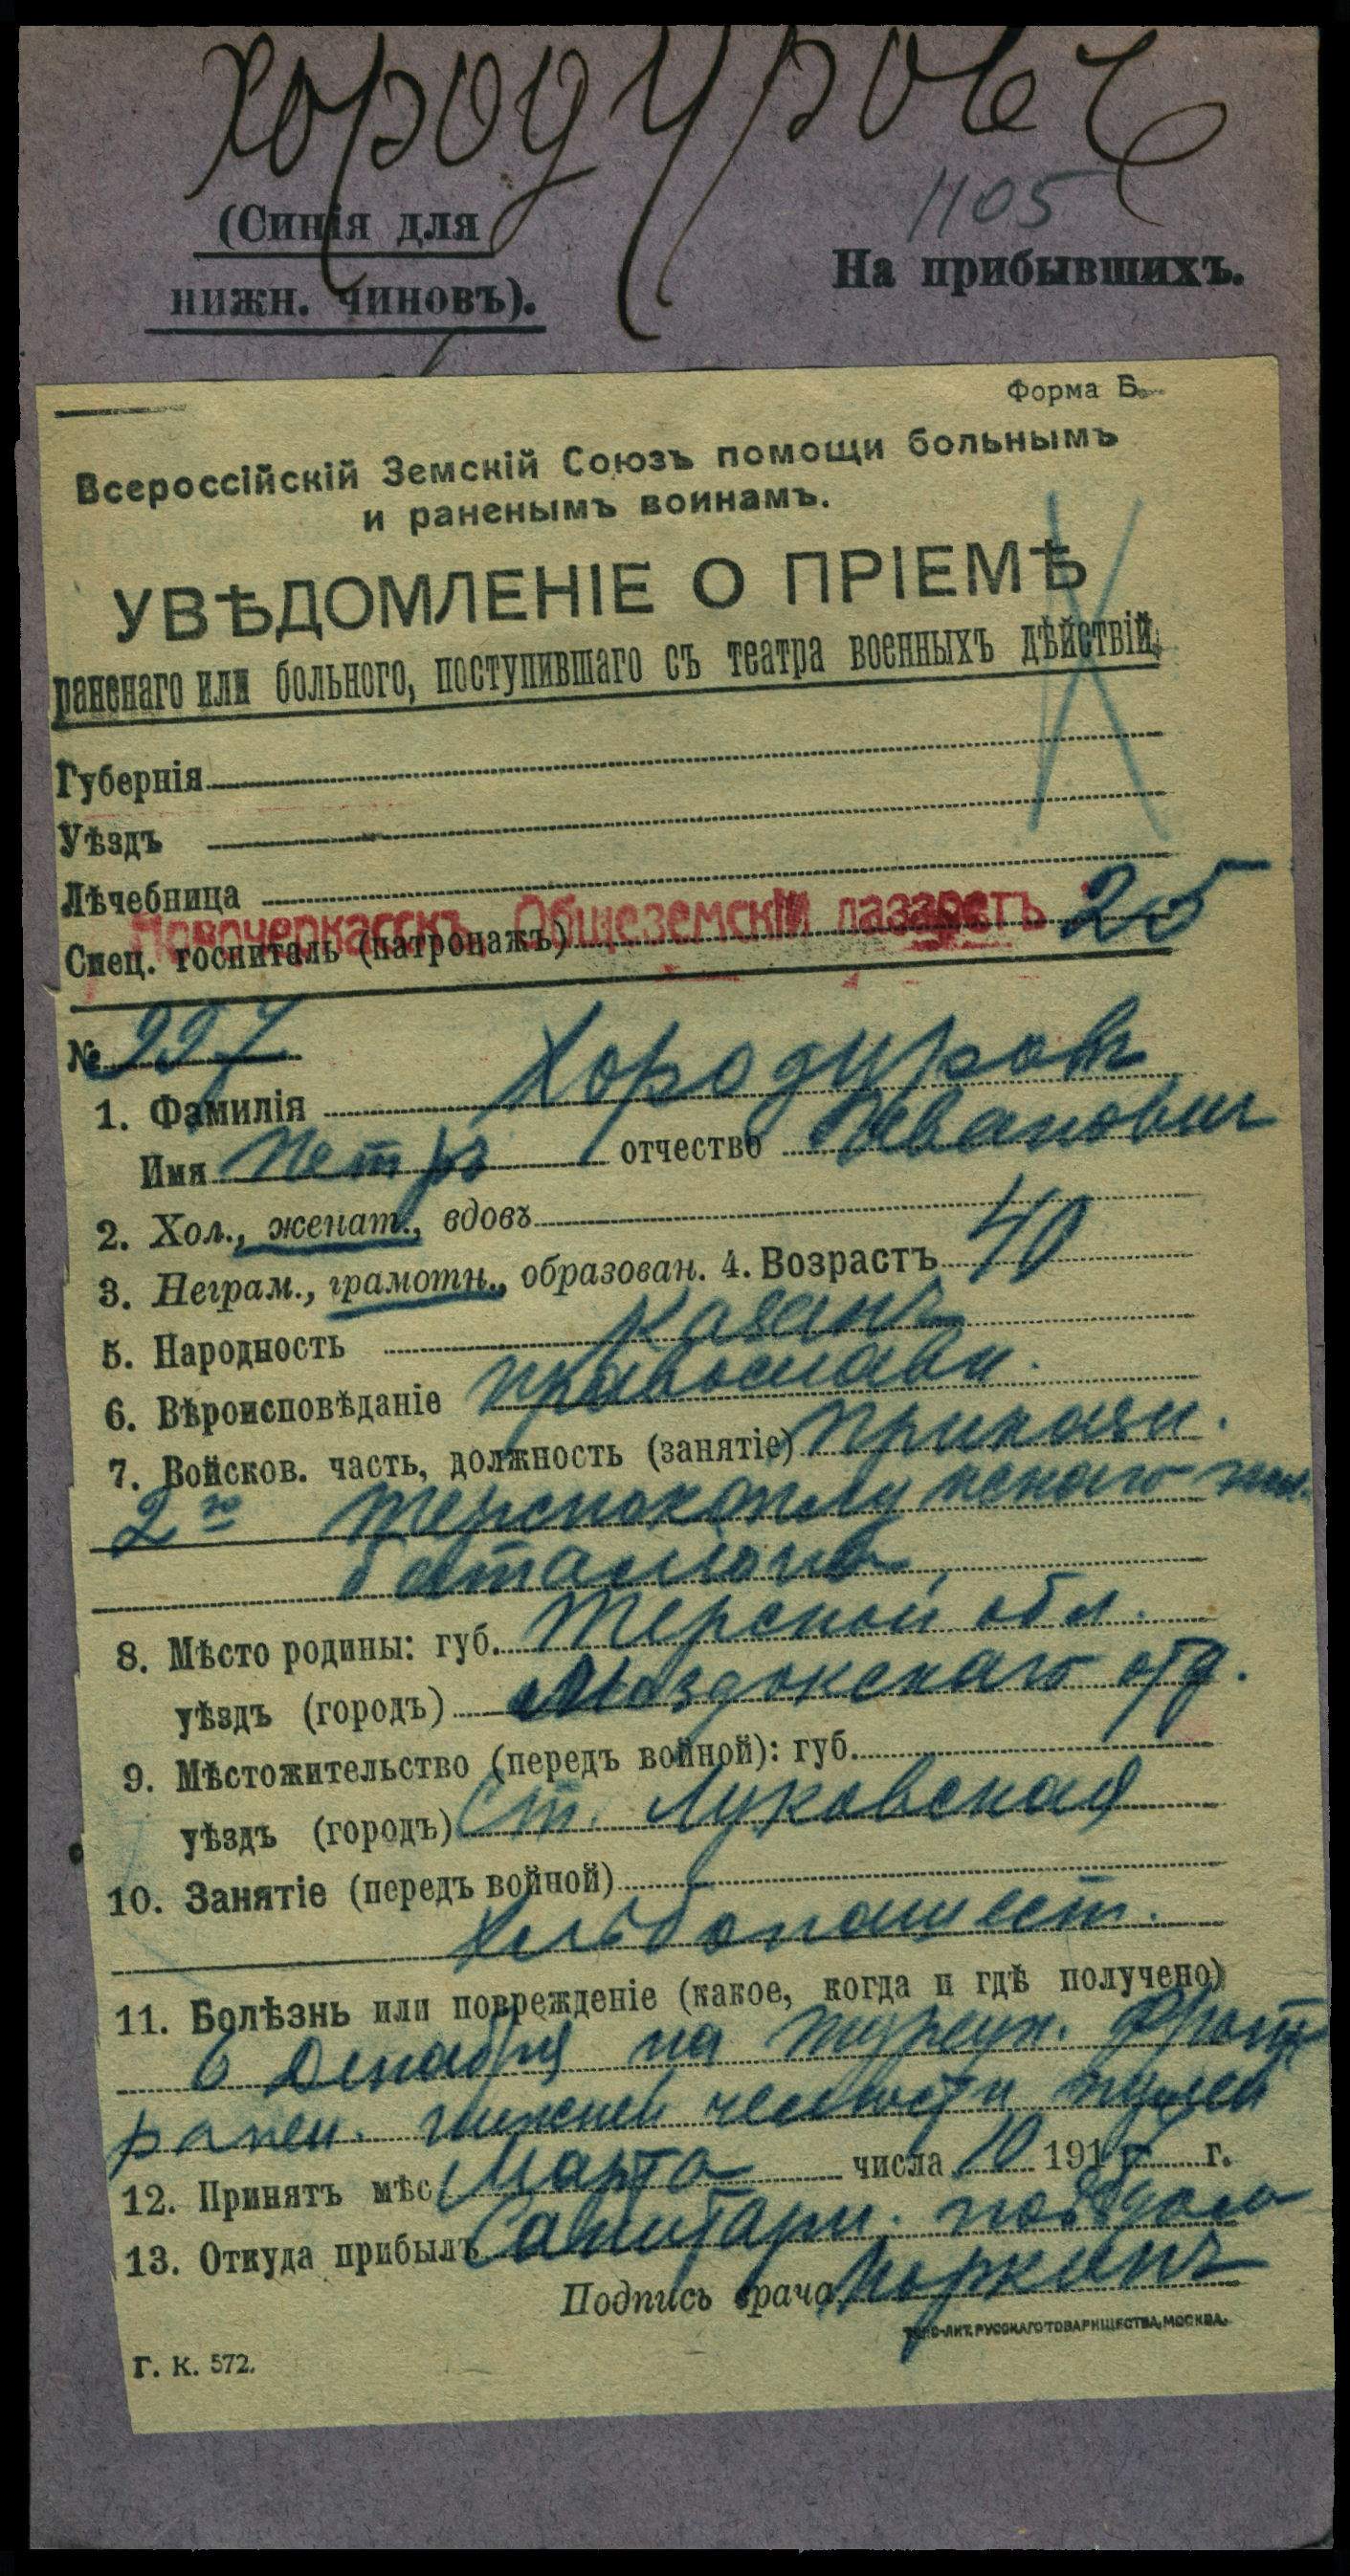 Хородуровъ
1105
(Синія для
нижн. чиновъ).
На прибывшихъ.
Форма Б.
Всероссійскій Земскій Союзъ помощи больнымъ
и раненымъ воинамъ.
УВѢДОМЛЕНІЕ О ПРІЕМѢ
раненаго или больного, поступившаго съ театра военныхъ дѣйствій.
Губернія
Уѣздъ
Лѣчебница
Новочеркасскъ Общеземскій лазаретъ 25
Спец. госпиталь (патронажъ)
№ 227
1. Фамилія Хородуровъ
Имя Петръ отчество Иванович
2. Хол., женат., вдовъ
3. Неграм., грамотн., образован. 4. Возрастъ 40
5. Народность Казакъ
6. Вѣроисповѣданіе православн.
7. Войсков. часть, должность (занятіе)
2го
баталіона
8. Мѣсто родины: губ. Терской обл.
уѣздъ (городъ) Моздокскаго отд.
9. Мѣстожительство (передъ войной): губ.
уѣздъ (городъ) Ст. Луковская
10. Занятіе (передъ войной)
Хлѣбопашест.
11. Болѣзнь или поврежденіе (какое, когда и гдѣ получено)
6 Декабря на турецк. фронт
ранен. нижней челюсти пулей
12. Принятъ мѣс. Марта числа 10 1915 г.
13. Откуда прибылъ Санитарн. поѣздомъ
Подпись врача
ТИПО-ЛИТ. РУССКАГО ТОВАРИЩЕСТВА, МОСКВА.
Г. К. 572.